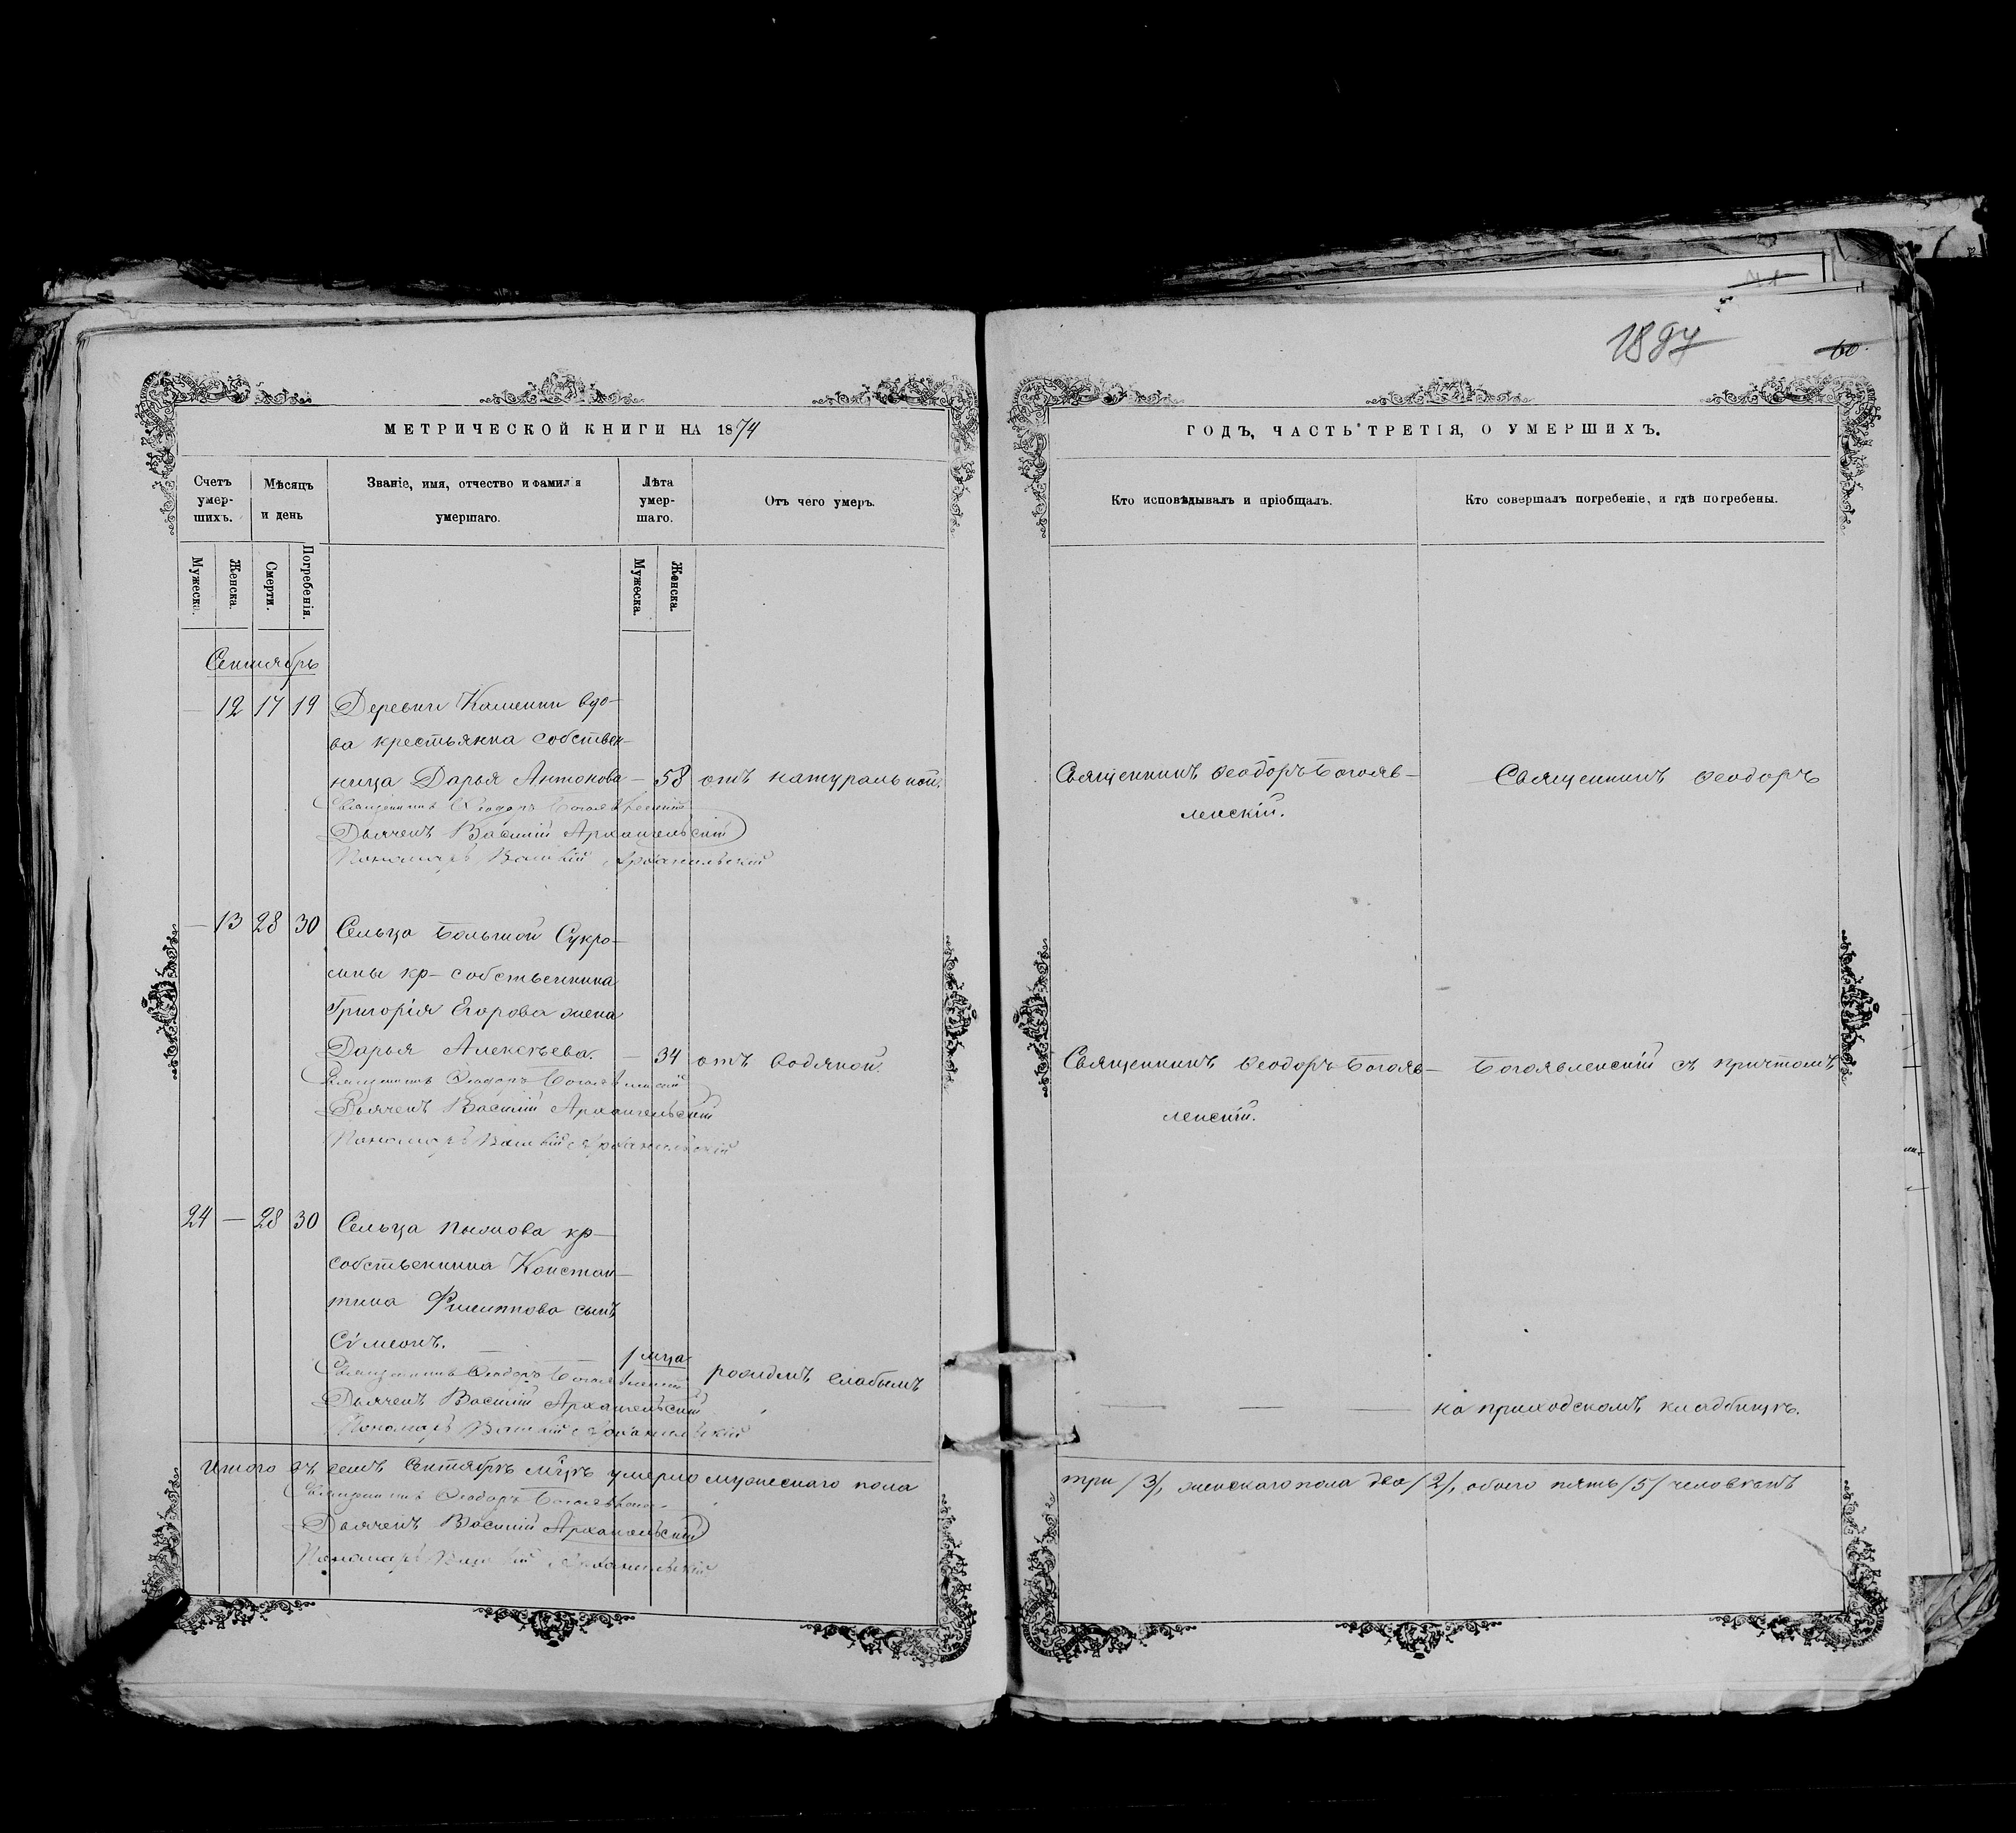 1897
60.
МЕТРИЧЕСКОЙ КНИГИ НА 1874
ГОДЪ, ЧАСТЬ ТРЕТІЯ, О УМЕРШИХЪ.
Счетъ умер-шихъ.
Мѣсяцъ и день
Званіе, имя, отчество и фамилія
умершаго.
Лѣта умер-шаго.
Отъ чего умеръ.
Кто исповѣдывалъ и пріобщалъ.
Кто совершалъ погребеніе, и гдѣ погребены.
Мужеска.
Женска.
Смерти.
Погребенія.
Мужеска.
Женска.
Сентябрь
— 12 17 19 Деревни Каменки вдо-
ва крестьянка собствен-
ница Дарья Антонова — 58 отъ натуральной.
Священникъ Ѳеодоръ Богоявленскій
Дьячекъ Василій Архангельскій
Пономарь Василій Архангельскій
Священникъ Ѳеодоръ Богояв-
ленскій.
Священникъ Ѳеодоръ
— 13 28 30 Сельца Большой Сукро-
мны кр- собственника
Григорія Егорова жена
Дарья Алексѣева. — 34 отъ водяной.
Священникъ Ѳеодоръ Богоявленскій
Дьячекъ Василій Архангельскій
Пономарь Василій Архангельскій
Священникъ Ѳеодоръ Богояв-
ленскій.
Богоявленскій съ причтомъ
24 — 28 30 Сельца кр-
собственника Констан-
тина Филиппова сынъ
Сѵмеонъ. 1 мца
рожденъ слабымъ
Священникъ Ѳеодоръ Богоявленскій
Дьячекъ Василій Архангельскій
Пономарь Василій Архангельскій
— — — на приходскомъ кладбищѣ.
Итого въ семъ Сентябрѣ мцѣ умерло мужескаго пола
три /3/, женскаго пола два /2/, обоего пять /5/ человѣкъ
Священникъ Ѳеодоръ Богоявленскій
Дьячекъ Василій Архангельскій
Пономарь Василій Архангельскій